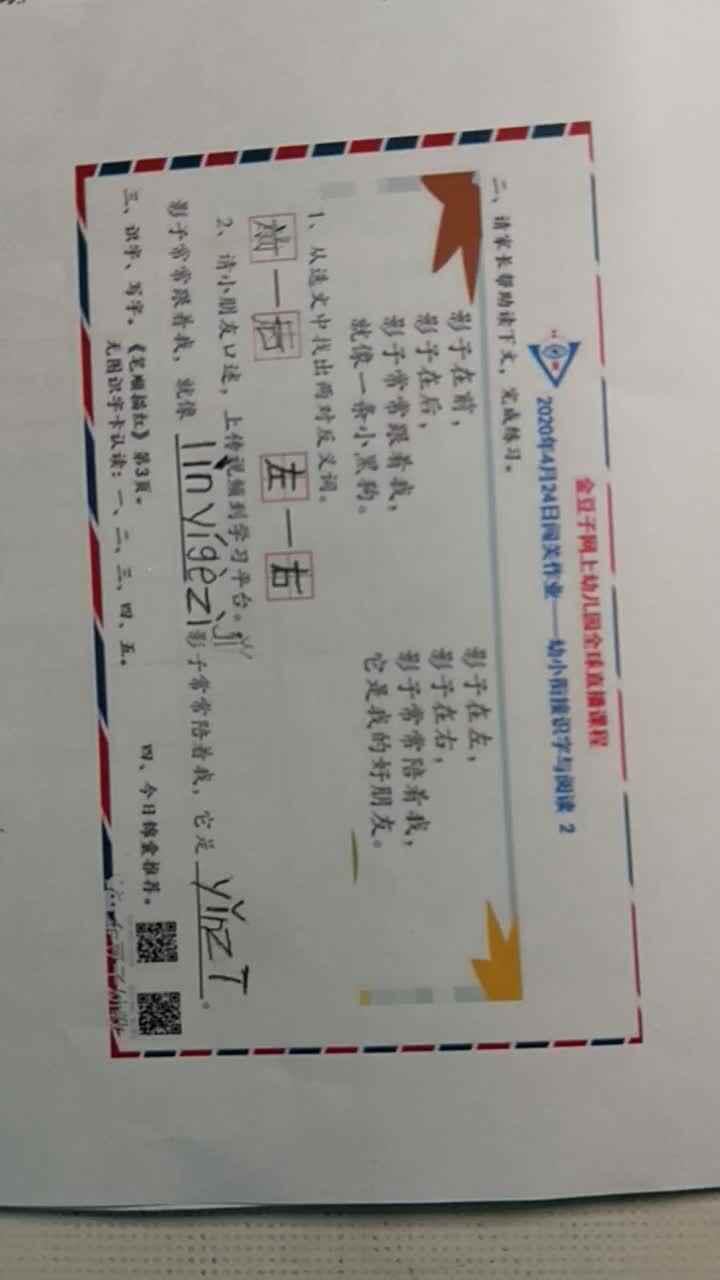 金豆子网上幼儿园全球直播课程
2020年4月24日闯关作业——幼小衔接识字与阅读 2
二、请家长帮助读下文，完成练习。
影子在前，
影子在后，
影子常常跟着我，
就像一条小黑狗。
影子在左，
影子在右，
影子常常陪着我，
它是我的好朋友。
1、从选文中找出两对反义词。
前—后 左—右
2、请小朋友口述，上传视频到学习平台。
影子常常跟着我，就像 影子常常陪着我，它是 yǐnzT。
三、识字、写字。《笔顺描红》第3页。
无图识字卡认读：一、二、三、四、五。
四、今日锦盒推荐。